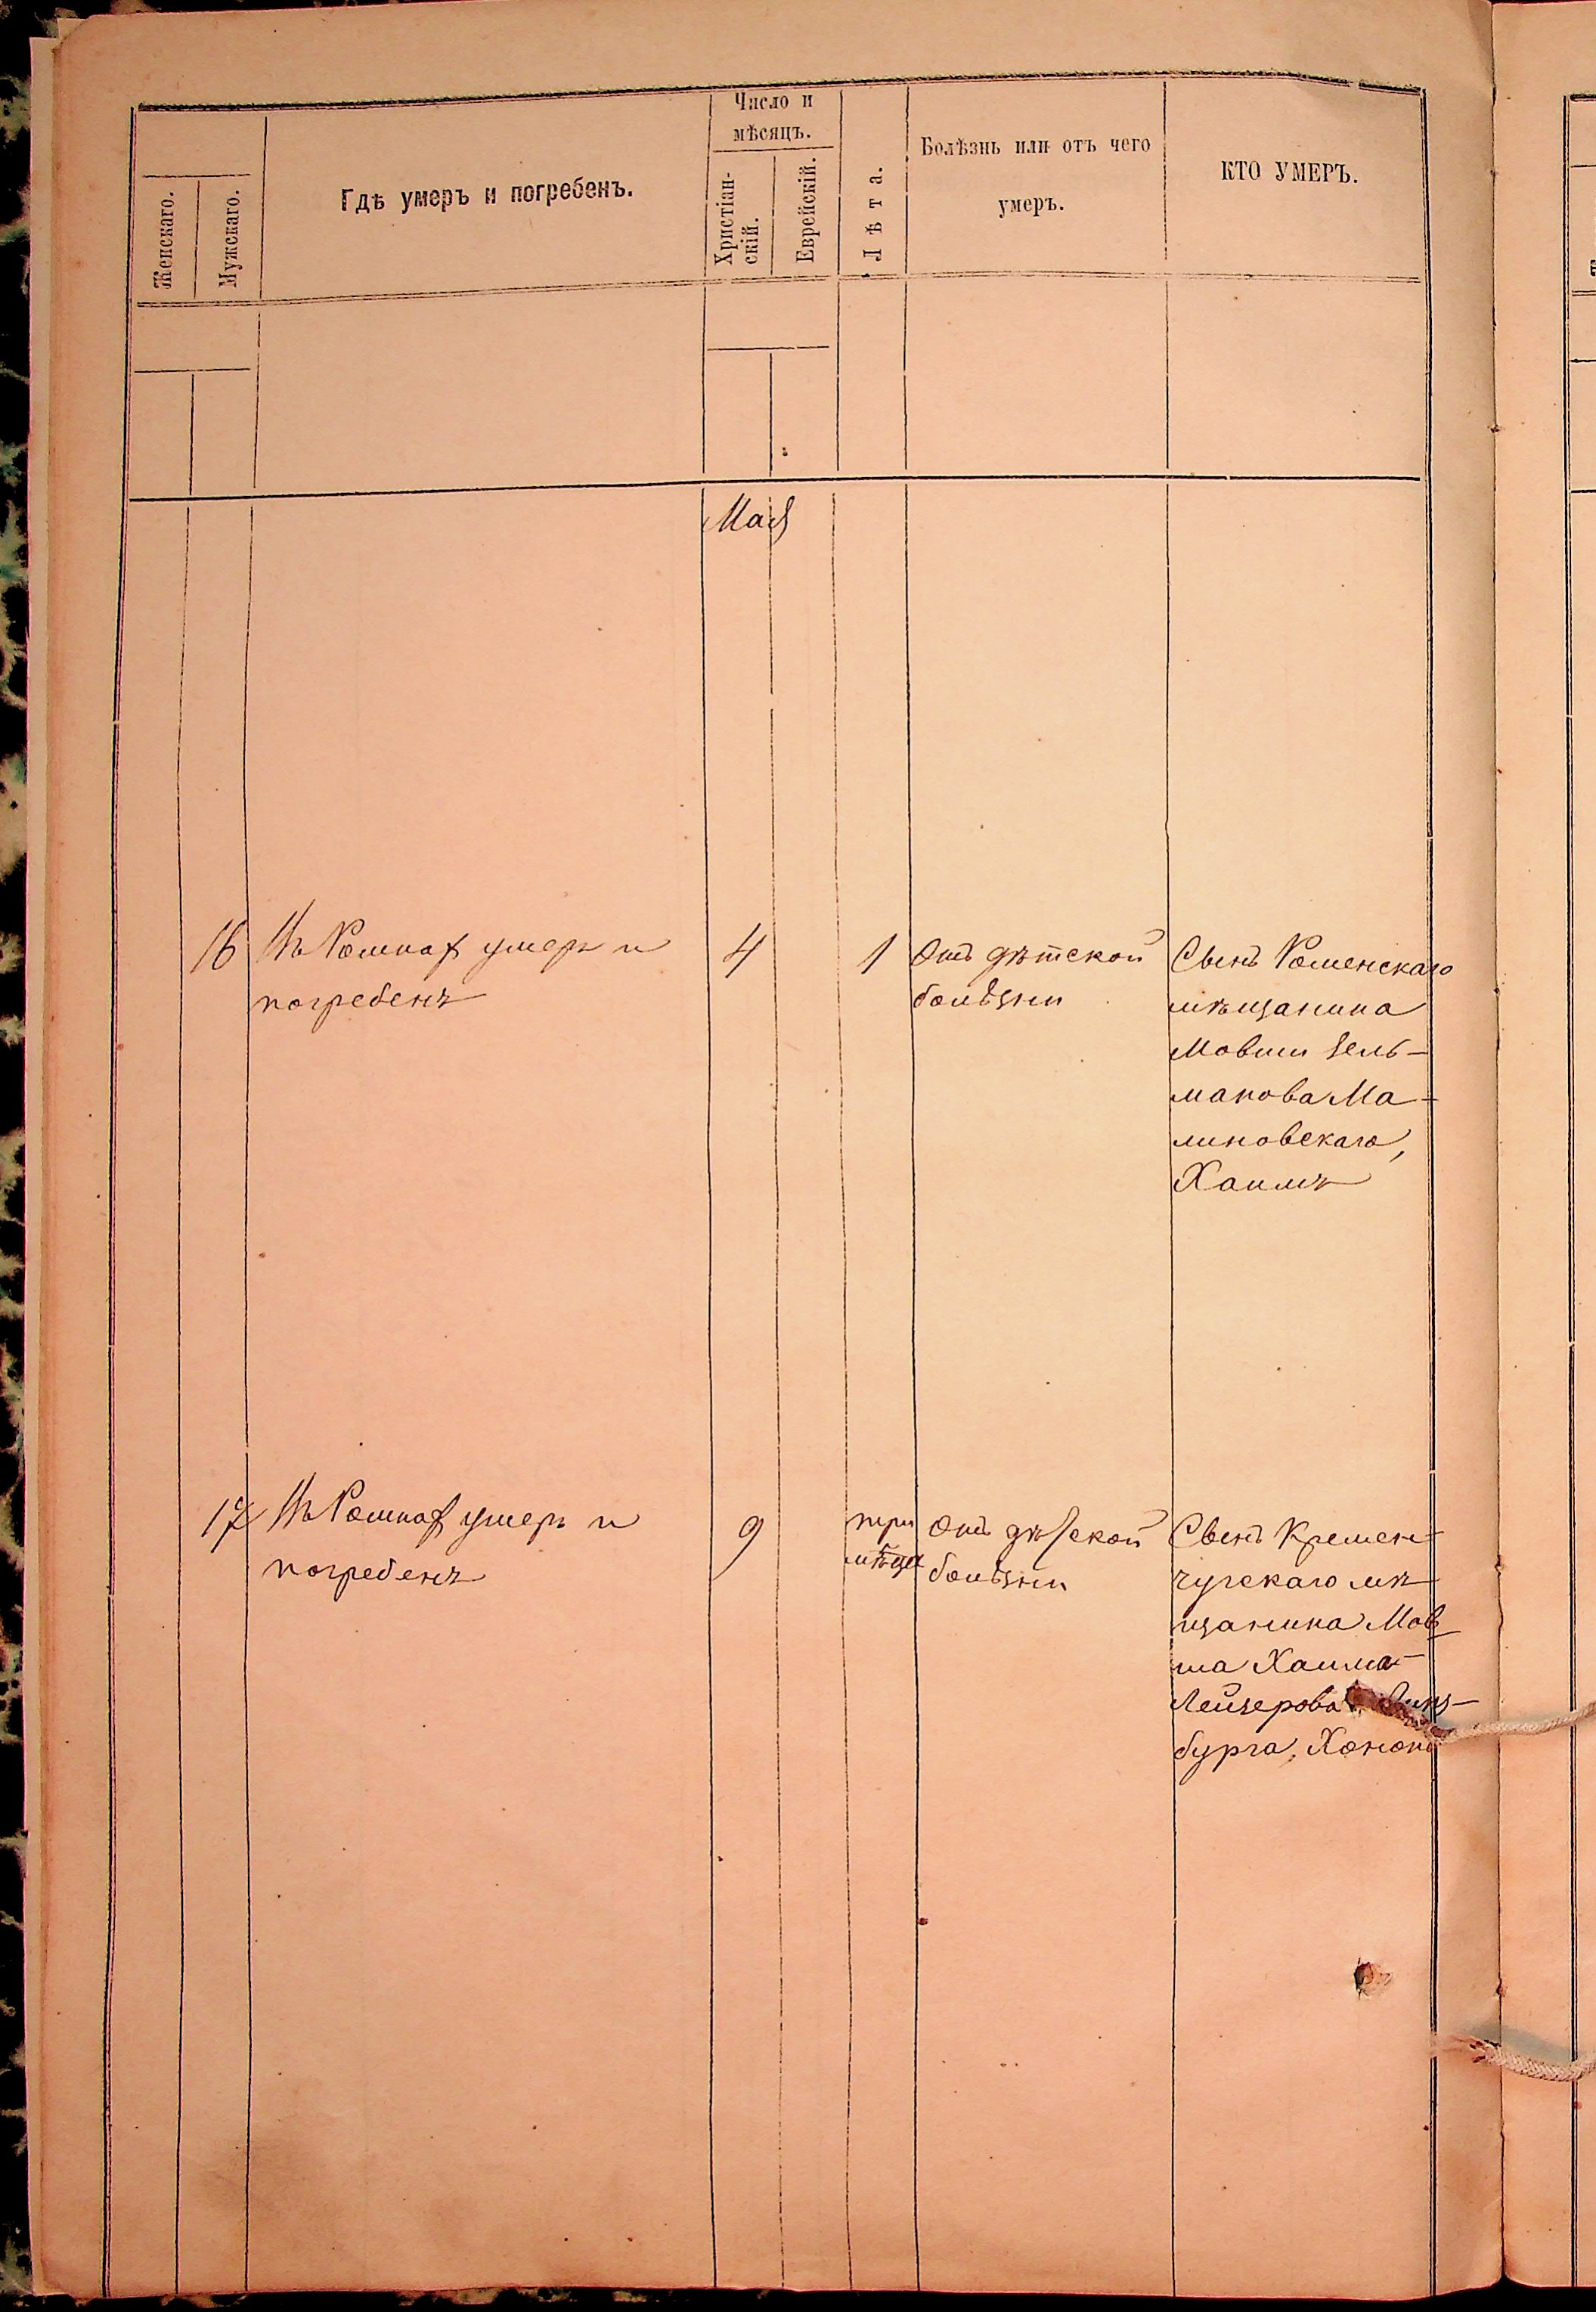 Женскаго.
Мужскаго.
Гдѣ умеръ и погребенъ.
Число и
мѣсяцъ.
Христіан-
скій.
Еврейскій.
Лѣта.
Болѣзнь или отъ чего
умеръ.
КТО УМЕРЪ.
Мая
16
Въ Ромнах умеръ и
погребенъ
4
1
Отъ дѣтской
болѣзни
Сынъ Роменскаго
мѣщанина
Мовши Зель-
манова Ма-
линовскаго,
Хаимъ
17
Въ Ромнах умеръ и
погребенъ
9
три
мѣсяца
Отъ дѣтской
болѣзни
Сынъ Кремен-
чугскаго мѣ-
щанина Мов
ша Хаима-
Лейзерова
бурга,